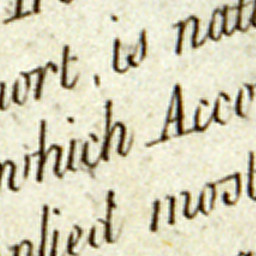 ort, is nat
which Acco
plied most